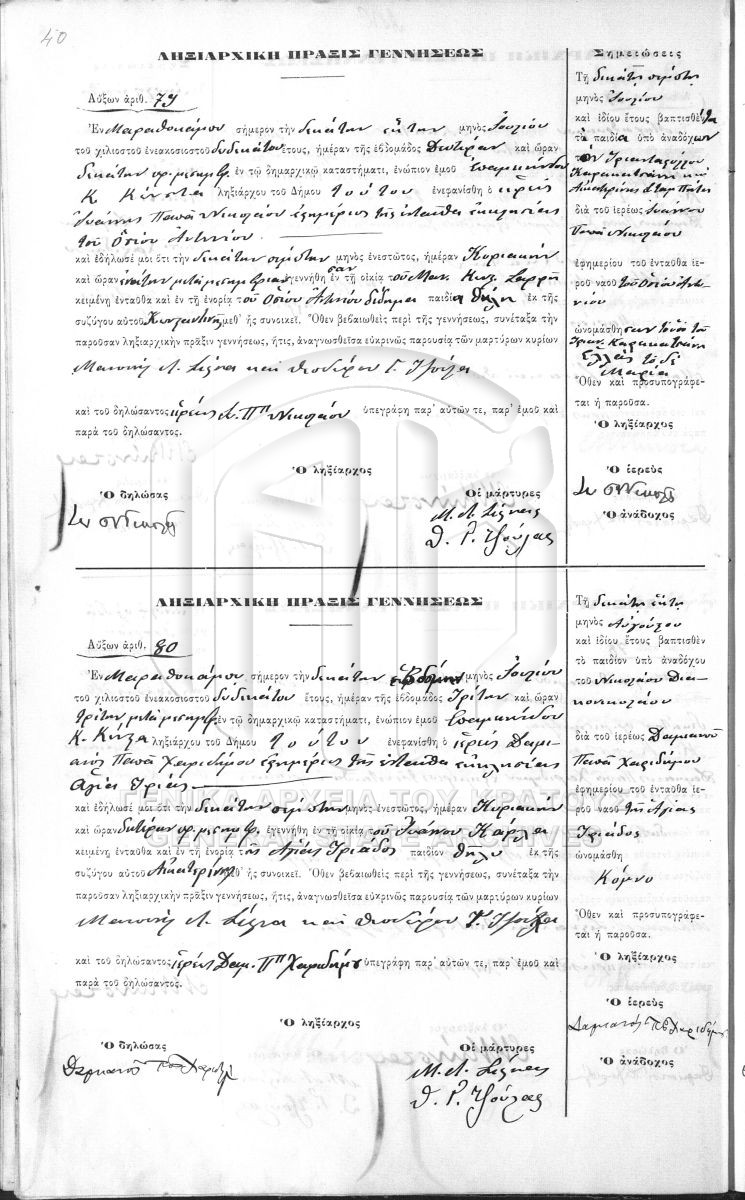 40
ΛΗΞΙΑΡΧΙΚΗ ΠΡΑΞΙΣ ΓΕΝΝΗΣΕΩΣ
Αὔξων ἀριθ. 79
Ἐν Μαραθοκάμπῳ σήμερον τὴν δεκάτην ἕκτην μηνὸς Ἰουλίου
τοῦ χιλιοστοῦ ἐνεακοσιοστοῦ δωδεκάτου ἔτους, ἡμέραν τῆς ἑβδομάδος Δευτέραν καὶ ὥραν
δεκάτην πρ. μεσημβρ. ἐν τῷ δημαρχικῷ καταστήματι, ἐνώπιον ἐμοῦ Ἐπαμεινώνδου
Κ ληξιάρχου τοῦ Δήμου τούτου ἐνεφανίσθη ὁ ἱερεὺς
Ἰωάννης Παπᾶ Νικολάου ἐφημέριος τῆς ἐνταῦθα ἐκκλησίας
τοῦ Ὁσίου Ἀντωνίου
καὶ ἐδήλωσέ μοι ὅτι τὴν δεκάτην πέμπτην μηνὸς ἐνεστῶτος, ἡμέραν Κυριακὴν
καὶ ὥραν ἐνάτην μετὰ μεσημβρίαν ἐγεννήθησαν ἐν τῇ οἰκίᾳ τοῦ Μαν.
κειμένῃ ἐνταῦθα καὶ ἐν τῇ ἐνορίᾳ τοῦ Ὁσίου Ἀντωνίου δίδυμα παιδία θήλη ἐκ τῆς
συζύγου αὐτοῦ Κωνσταντινιᾶς μεθ' ἧς συνοικεῖ. Ὅθεν βεβαιωθεὶς περὶ τῆς γεννήσεως, συνέταξα τὴν
παροῦσαν ληξιαρχικὴν πρᾶξιν γεννήσεως, ἥτις, ἀναγνωσθεῖσα εὐκρινῶς παρουσίᾳ τῶν μαρτύρων κυρίων
Μανουὴλ Λ. καὶ Θεοδώρου Γ. Τζούλα
καὶ τοῦ δηλώσαντος ἱερέως Ἰω. Ππ Νικολάου ὑπεγράφη παρ' αὐτῶν τε, παρ' ἐμοῦ καὶ
παρὰ τοῦ δηλώσαντος.
Ὁ ληξίαρχος
Ὁ δηλώσας
Οἱ μάρτυρες
Μ. Λ.
Θ. Γ. Τζούλας
Σημειώσεις
Τῇ δεκάτῃ πέμπτῃ
μηνὸς Ἰουλίου
καὶ ἰδίου ἔτους βαπτισθέντα
τὰ παιδία ὑπὸ ἀναδόχων
τῶν Τριανταφύλλου
Καρακατσάνη καὶ
Αἰκατερίνης
διὰ τοῦ ἱερέως Ἰωάννου
Παπᾶ Νικολάου
ἐφημερίου τοῦ ἐνταῦθα ἱε-
ροῦ ναοῦ τοῦ Ὁσίου Ἀντω-
νίου
ὠνομάσθησαν
Καρακατσάνη
Ἑλλὰς τὸ δὲ
Μαρία
Ὅθεν καὶ προσυπογράφε-
ται ἡ παροῦσα.
Ὁ ληξίαρχος
Ὁ ἱερεὺς
Ὁ ἀνάδοχος
ΛΗΞΙΑΡΧΙΚΗ ΠΡΑΞΙΣ ΓΕΝΝΗΣΕΩΣ
Αὔξων ἀριθ. 80
Ἐν Μαραθοκάμπῳ σήμερον τὴν δεκάτην ἑβδόμην μηνὸς Ἰουλίου
τοῦ χιλιοστοῦ ἐνεακοσιοστοῦ δωδεκάτου ἔτους, ἡμέραν τῆς ἑβδομάδος Τρίτην καὶ ὥραν
τρίτην μετὰ μεσημβρ. ἐν τῷ δημαρχικῷ καταστήματι, ἐνώπιον ἐμοῦ Ἐπαμεινώνδου
Κ. ληξιάρχου τοῦ Δήμου τούτου ἐνεφανίσθη ὁ ἱερεὺς Δαμι-
ανὸς Παπᾶ Χαριδήμου ἐφημέριος τῆς ἐνταῦθα ἐκκλησίας
Ἁγίας Τριάδος
καὶ ἐδήλωσέ μοι ὅτι τὴν δεκάτην πέμπτην μηνὸς ἐνεστῶτος, ἡμέραν Κυριακὴν
καὶ ὥραν δευτέραν πρ. μεσημβρ. ἐγεννήθη ἐν τῇ οἰκίᾳ τοῦ Ἰωάννου Κάρλα
κειμένῃ ἐνταῦθα καὶ ἐν τῇ ἐνορίᾳ τῆς Ἁγίας Τριάδος παιδίον θῆλυ ἐκ τῆς
συζύγου αὐτοῦ Αἰκατερίνης μεθ' ἧς συνοικεῖ. Ὅθεν βεβαιωθεὶς περὶ τῆς γεννήσεως, συνέταξα τὴν
παροῦσαν ληξιαρχικὴν πρᾶξιν γεννήσεως, ἥτις, ἀναγνωσθεῖσα εὐκρινῶς παρουσίᾳ τῶν μαρτύρων κυρίων
Μανουὴλ Λ. καὶ Θεοδώρου Γ. Τζούλα
καὶ τοῦ δηλώσαντος ἱερέως Δαμ. Ππ Χαριδήμου ὑπεγράφη παρ' αὐτῶν τε, παρ' ἐμοῦ καὶ
παρὰ τοῦ δηλώσαντος.
Ὁ ληξίαρχος
Ὁ δηλώσας
Δαμιανὸς
Οἱ μάρτυρες
Μ. Λ.
Θ. Γ. Τζούλας
Τῇ δεκάτῃ ἕκτῃ
μηνὸς Αὐγούστου
καὶ ἰδίου ἔτους βαπτισθὲν
τὸ παιδίον ὑπὸ ἀναδόχου
τοῦ Νικολάου Δια-
κονικολάου
διὰ τοῦ ἱερέως Δαμιανοῦ
Παπᾶ Χαριδήμου
ἐφημερίου τοῦ ἐνταῦθα ἱε-
ροῦ ναοῦ τῆς Ἁγίας
Τριάδος
ὠνομάσθη
Κόμνω
Ὅθεν καὶ προσυπογράφε-
ται ἡ παροῦσα.
Ὁ ληξίαρχος
Ὁ ἱερεὺς
Δαμιανὸς Χαριδήμου
Ὁ ἀνάδοχος
ΓΕΝΙΚΑ ΑΡΧΕΙΑ ΤΟΥ ΚΡΑΤΟΥΣ
GENERAL STATE ARCHIVES